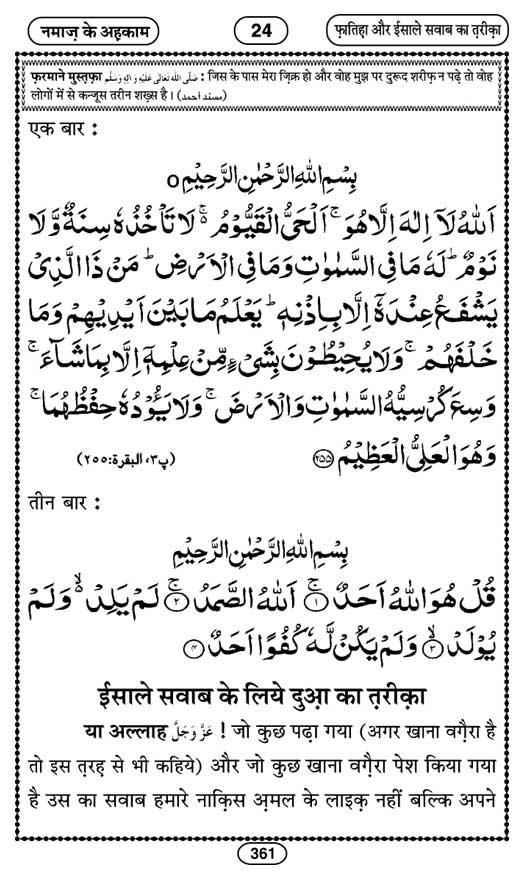 नमाज़ के अह़काम
24
फ़ातिह़ा और ईसाले सवाब का त़रीक़ा
फ़रमाने मुस्त़फ़ा صَلَّى اللهُ تَعَالٰى عَلَيْهِ وَاٰلِهٖ وَسَلَّم : जिस के पास मेरा ज़िक्र हो और वोह मुझ पर दुरूद शरीफ़ न पढ़े तो वोह
लोगों में से कन्जूस तरीन शख़्स है। (مسند احمد)
एक बार :
بِسْمِ اللهِ الرَّحْمٰنِ الرَّحِيْمِ ○
اَللهُ لَآ اِلٰهَ اِلَّا هُوَ ۚ اَلْحَيُّ الْقَيُّوْمُ ۚ لَا تَاْخُذُهٗ سِنَةٌ وَّلَا
نَوْمٌ ؕ لَهٗ مَا فِي السَّمٰوٰتِ وَمَا فِي الْاَرْضِ ؕ مَنْ ذَا الَّذِيْ
يَشْفَعُ عِنْدَهٗٓ اِلَّا بِاِذْنِهٖ ؕ يَعْلَمُ مَا بَيْنَ اَيْدِيْهِمْ وَمَا
خَلْفَهُمْ ۚ وَلَا يُحِيْطُوْنَ بِشَيْءٍ مِّنْ عِلْمِهٖٓ اِلَّا بِمَا شَآءَ ۚ
وَسِعَ كُرْسِيُّهُ السَّمٰوٰتِ وَالْاَرْضَ ۚ وَلَا يَـُٔوْدُهٗ حِفْظُهُمَا ۚ
وَهُوَ الْعَلِيُّ الْعَظِيْمُ ﴿۲۵۵﴾ (پ۳، البقرة:۲۵۵)
तीन बार :
بِسْمِ اللهِ الرَّحْمٰنِ الرَّحِيْمِ
قُلْ هُوَ اللهُ اَحَدٌ ۚ﴿۱﴾ اَللهُ الصَّمَدُ ۚ﴿۲﴾ لَمْ يَلِدْ ۙ۬ وَلَمْ
يُوْلَدْ ۙ﴿۳﴾ وَلَمْ يَكُنْ لَّهٗ كُفُوًا اَحَدٌ ﴿۴﴾
ईसाले सवाब के लिये दुआ़ का त़रीक़ा
या अल्लाह عَزَّوَجَلَّ ! जो कुछ पढ़ा गया (अगर खाना वग़ैरा है
तो इस त़रह़ से भी कहिये) और जो कुछ खाना वग़ैरा पेश किया गया
है उस का सवाब हमारे नाक़िस अ़मल के लाइक़ नहीं बल्कि अपने
361